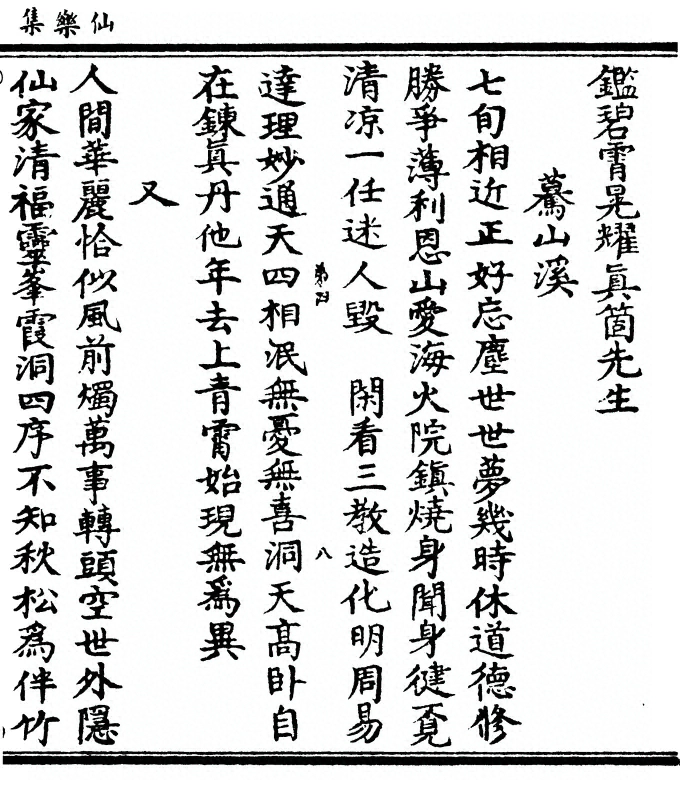 仙樂集
鑑碧霄晃耀眞箇先生
驀山溪
七旬相近正好忘塵世世夢幾時休道德修
勝爭薄利恩山愛海火院鎮燒身聞身健覔
清凉一任迷人毀　閑看三教造化明周易
達理妙通天四相泯無憂無喜洞天高卧自
在鍊眞丹他年去上青霄始現無爲異
又
人間華麗恰似風前燭萬事轉頭空世外隱
仙家清福靈峯霞洞四序不知秋松爲伴竹
八